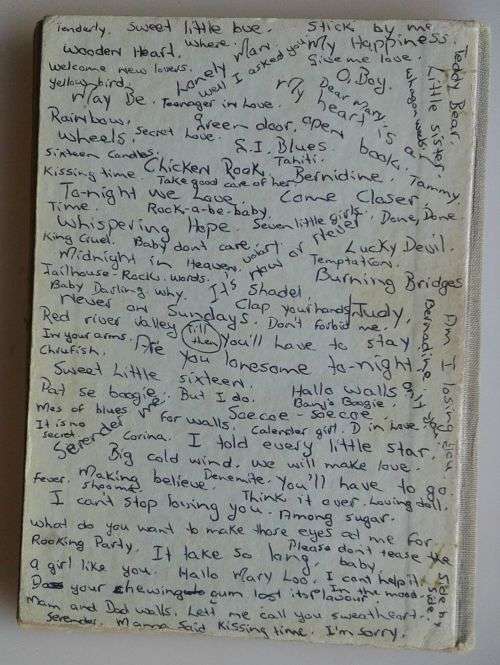 Tenderly. Sweet little bue. Stick by me
Wooden Heart. Where. Lonely Man My Happiness.
Welcome new lovers. Well I asked you Give me love.
yellow bird. O, Boy.
May Be. Teenager in Love. My heart is a Dear Mary
Rainbow. green door. open book. Tammy
Wheels. Secret Love. G.I. Blues.
Sixteen Candles. Tahiti.
Kissing time. Chicken Rook. Bernidine.
Take good care of her
To-night we Love. Come Closer.
Time. Rock-a-be-baby.
Whispering Hope. Seven little girls. Done, Done.
King Cruel. Baby dont care. It's now or never Lucky Devil.
Midnight in Heaven. Temptation.
Jailhouse-Rock. words. Burning Bridges
Baby Darling. why. Shadel
Never on Sundays. Clap your hands. Judy.
Red river valley. Till then Don't forbid me.
In your arms. You'll have to stay
Are you lonesome to-night
Sweet Little sixteen.
Dat se boogie. But I do. Hallo walls
Banjo Boogie.
Mes of blues for walls. Soe coe - soe coe
It is no secret Calender girl. D in Love.
Serender Corina. I told every little star.
Big cold wind. We will make love.
fever. Making believe. Denemite. You'll have to go.
I can't stop loving you. Think it over. Loving doll.
Among sugar.
What do you want to make those eyes at me for
Rooking Party. Please don't tease
It take so long baby
a girl like you. Hallo Mary Loo. I cant help it
Does your chewing gum lost its flavour In the mood.
Mam and Dad walls. Lett me call you sweatheart.
Serender. Mamma Said Kissing time. I'm sorry.
Teddy Bear.
Little sister.
Am I losing you.
Bernadine
only you.
the side by side